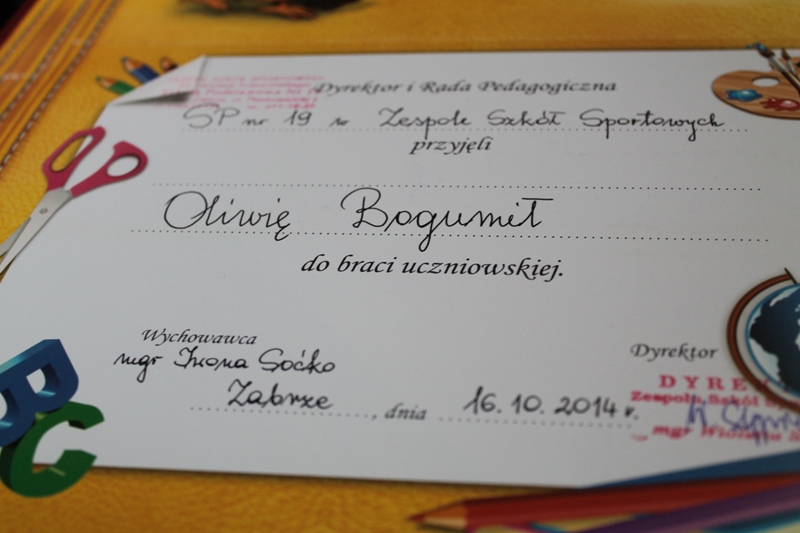 Dyrektor i Rada Pedagogiczna
SP nr 19 w Zespole Szkół Sportowych
przyjęli
Oliwię Bogumił
do braci uczniowskiej.
Wychowawca
mgr Iwona Soćko
Zabrze, dnia 16.10.2014 r.
Dyrektor
DYRE
Zespołu Szkół
mgr
BC